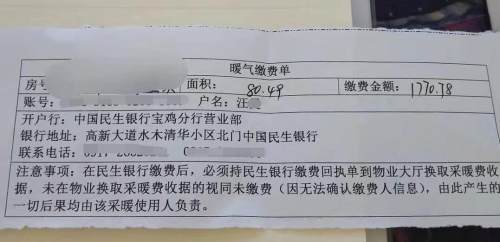 暖气缴费单
房号 面积: 80.49 缴费金额: 1770.78
账号: 户名:汪
开户行:中国民生银行宝鸡分行营业部
银行地址:高新大道水木清华小区北门中国民生银行
联系电话:
注意事项:在民生银行缴费后,必须持民生银行缴费回执单到物业大厅换取采暖费收
据,未在物业换取采暖费收据的视同未缴费(因无法确认缴费人信息),由此产生的
一切后果均由该采暖使用人负责。